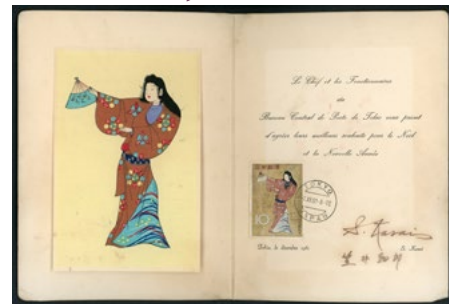 Le Chef et les Fonctionnaires
du
Bureau Central de Poste de Tokio vous prient
d'agréer leurs meilleurs souhaits pour le Noël
et la Nouvelle Année
10
TOKYO
JAPAN
Tokio, le décembre
S. Kasai